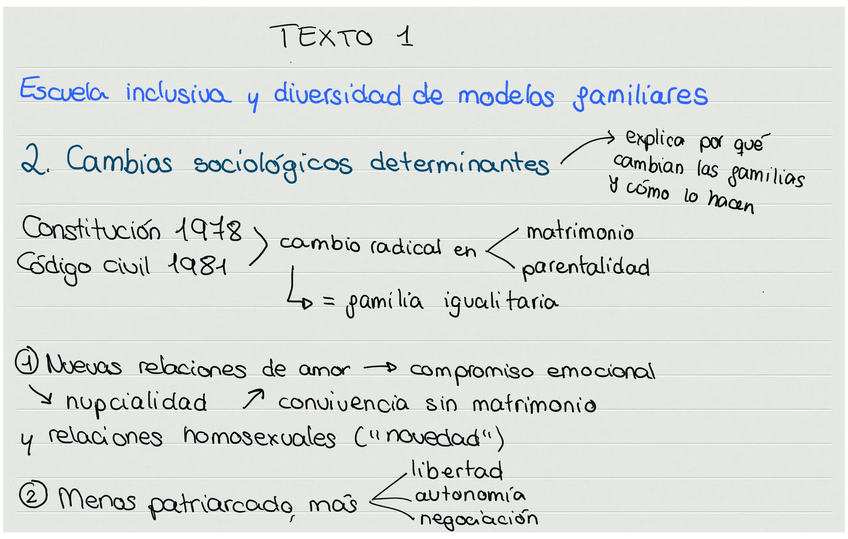 TEXTO 1
Escuela inclusiva y diversidad de modelos familiares
2. Cambios sociológicos determinantes → explica por qué
cambian las familias
y cómo lo hacen
Constitución 1978
Código civil 1981
cambio radical en
matrimonio
parentalidad
↳ = familia igualitaria
① Nuevas relaciones de amor → compromiso emocional
↘ nupcialidad ↗ convivencia sin matrimonio
y relaciones homosexuales ("novedad")
② Menos patriarcado, más
libertad
autonomía
negociación